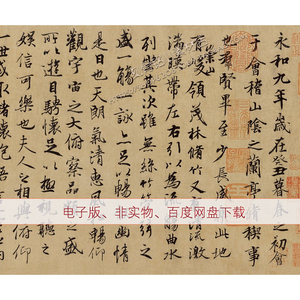 永和九年歲在癸丑暮春之初會
于會稽山陰之蘭亭脩稧事
也群賢畢至少長咸集此地
有崇山峻領茂林脩竹又有清流激
湍暎帶左右引以為流觴曲水
列坐其次雖無絲竹管弦之
盛一觴一詠亦足以暢敘幽情
是日也天朗氣清惠風和暢仰
觀宇宙之大俯察品類之盛
所以遊目騁懷足以極視聽之
娛信可樂也夫人之相與俯仰
一世或取諸懷抱悟言
电子版、非实物、百度网盘下载